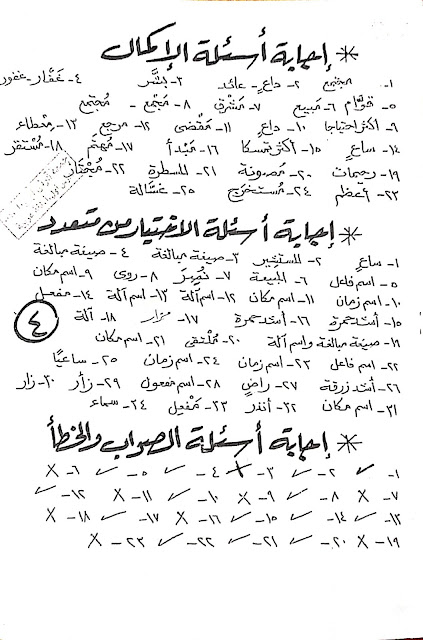 * إجابة أسئلة الإكمال
١- مجتمع ٢- داعٍ - عائد ٣- بشَّر ٤- غفَّار - غفور
٥- قوَّام ٦- مَبيع ٧- مَشْرِق ٨- مَتمع - مُجتمع
٩- أكثر احتياجا ١٠- داعٍ ١١- مَقْضى ١٢- مرجع ١٣- مِعْطاء
١٤- ساعٍ ١٥- أكثر تمسكا ١٦- مَبْدأ ١٧- مُهتم ١٨- مُستقر
١٩- رحيمات ٢٠- مَصونة ٢١- للسطرة ٢٢- مُختار
٢٣- أعظم ٢٤- مُستخرج ٢٥- غسَّالة
* إجابة أسئلة الاختيار من متعدد
١- ساعٍ ٢- للسنَّتير ٣- صيغة مبالغة ٤- صيغة مبالغة
٥- اسم فاعل ٦- المبيعة ٧- ٨- روى ٩- اسم مكان
١٠- اسم زمان ١١- اسم مكان ١٢- اسم آلة ١٣- اسم آلة ١٤- مفعل
١٥- أشد حمرة ١٦- أشد حمرة ١٧- مزار ١٨- آلة
٤
١٩- صيغة مبالغة واسم آلة ٢٠- مُلتقى ٢١- اسم مكان
٢٢- اسم فاعل ٢٣- اسم زمان ٢٤- اسم زمان ٢٥- ساعيًا
٢٦- أشد زرقة ٢٧- راضٍ ٢٨- اسم مفعول ٢٩- زأر ٣٠- زار
٣١- اسم مكان ٣٢- أندر ٣٣- مَفْعِل ٣٤- سماء
* إجابة أسئلة الصواب والخطأ
١- ✓ ٢- ✓ ٣- X ٤- ✓ ٥- ✓ ٦- X
٧- X ٨- ✓ ٩- X ١٠- ✓ ١١- X ١٢- ✓
١٣- ✓ ١٤- ✓ ١٥- ✓ ١٦- X ١٧- ✓ ١٨- X
١٩- X ٢٠- ✓ ٢١- ✓ ٢٢- ✓ ٢٣- X